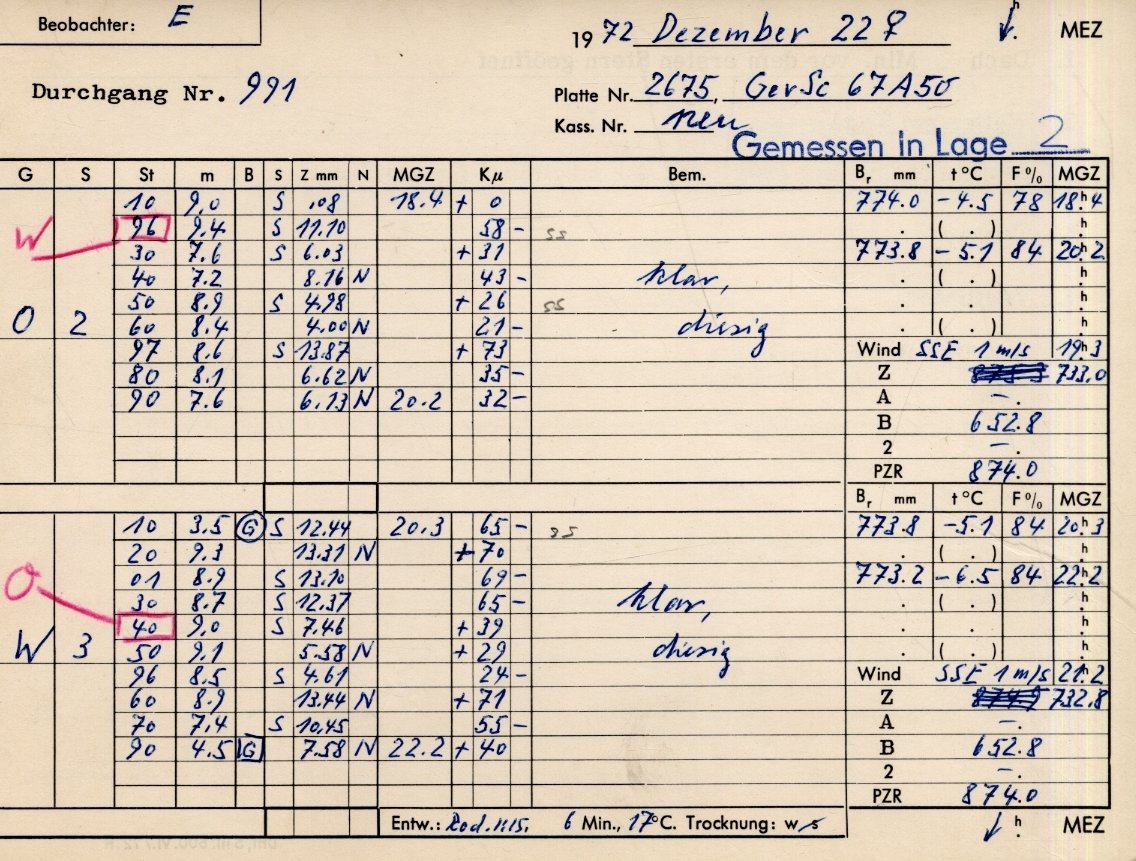 Beobachter: E
19 72 Dezember 22 ♀ h MEZ
Durchgang Nr. 991
Platte Nr. 2675, GerSc 67A50
Kass. Nr. neu
Gemessen in Lage 2
G S St m B S Z mm N MGZ Kμ Bem. Br mm t °C F % MGZ
10 9.0 S .08 18.4 + 0 774.0 -4.5 78 18h4
W 96 9.4 S 11.10 58 - . ( . ) h
30 7.6 S 6.03 + 31 773.8 -5.1 84 20h2
40 7.2 8.16 N 43 - klar, . ( . ) h
50 8.9 S 4.98 + 26 . . h
O 2 60 8.4 4.00 N 21 - diesig . ( . ) h
97 8.6 S 13.87 + 73 Wind SSE 1 m/s 19h3
80 8.1 6.62 N 35 - Z 733.0
90 7.6 6.13 N 20.2 32 - A - .
B 652.8
2 - .
PZR 874.0
Br mm t °C F % MGZ
10 3.5 G S 12.44 20.3 65 - 773.8 -5.1 84 20h3
20 9.3 13.31 N + 70 . ( . ) h
O 01 8.9 S 13.10 69 - 773.2 -6.5 84 22h2
30 8.7 S 12.37 65 - klar, . ( . ) h
40 9.0 S 7.46 + 39 . . h
W 3 50 9.1 5.58 N + 29 diesig . ( . ) h
96 8.5 S 4.61 24 - Wind SSE 1 m/s 21h2
60 8.9 13.44 N + 71 Z 732.8
70 7.4 S 10.45 55 - A - .
90 4.5 G 7.58 N 22.2 + 40 B 652.8
2 - .
PZR 874.0
Entw.: 6 Min., 17°C. Trocknung: w/s h MEZ